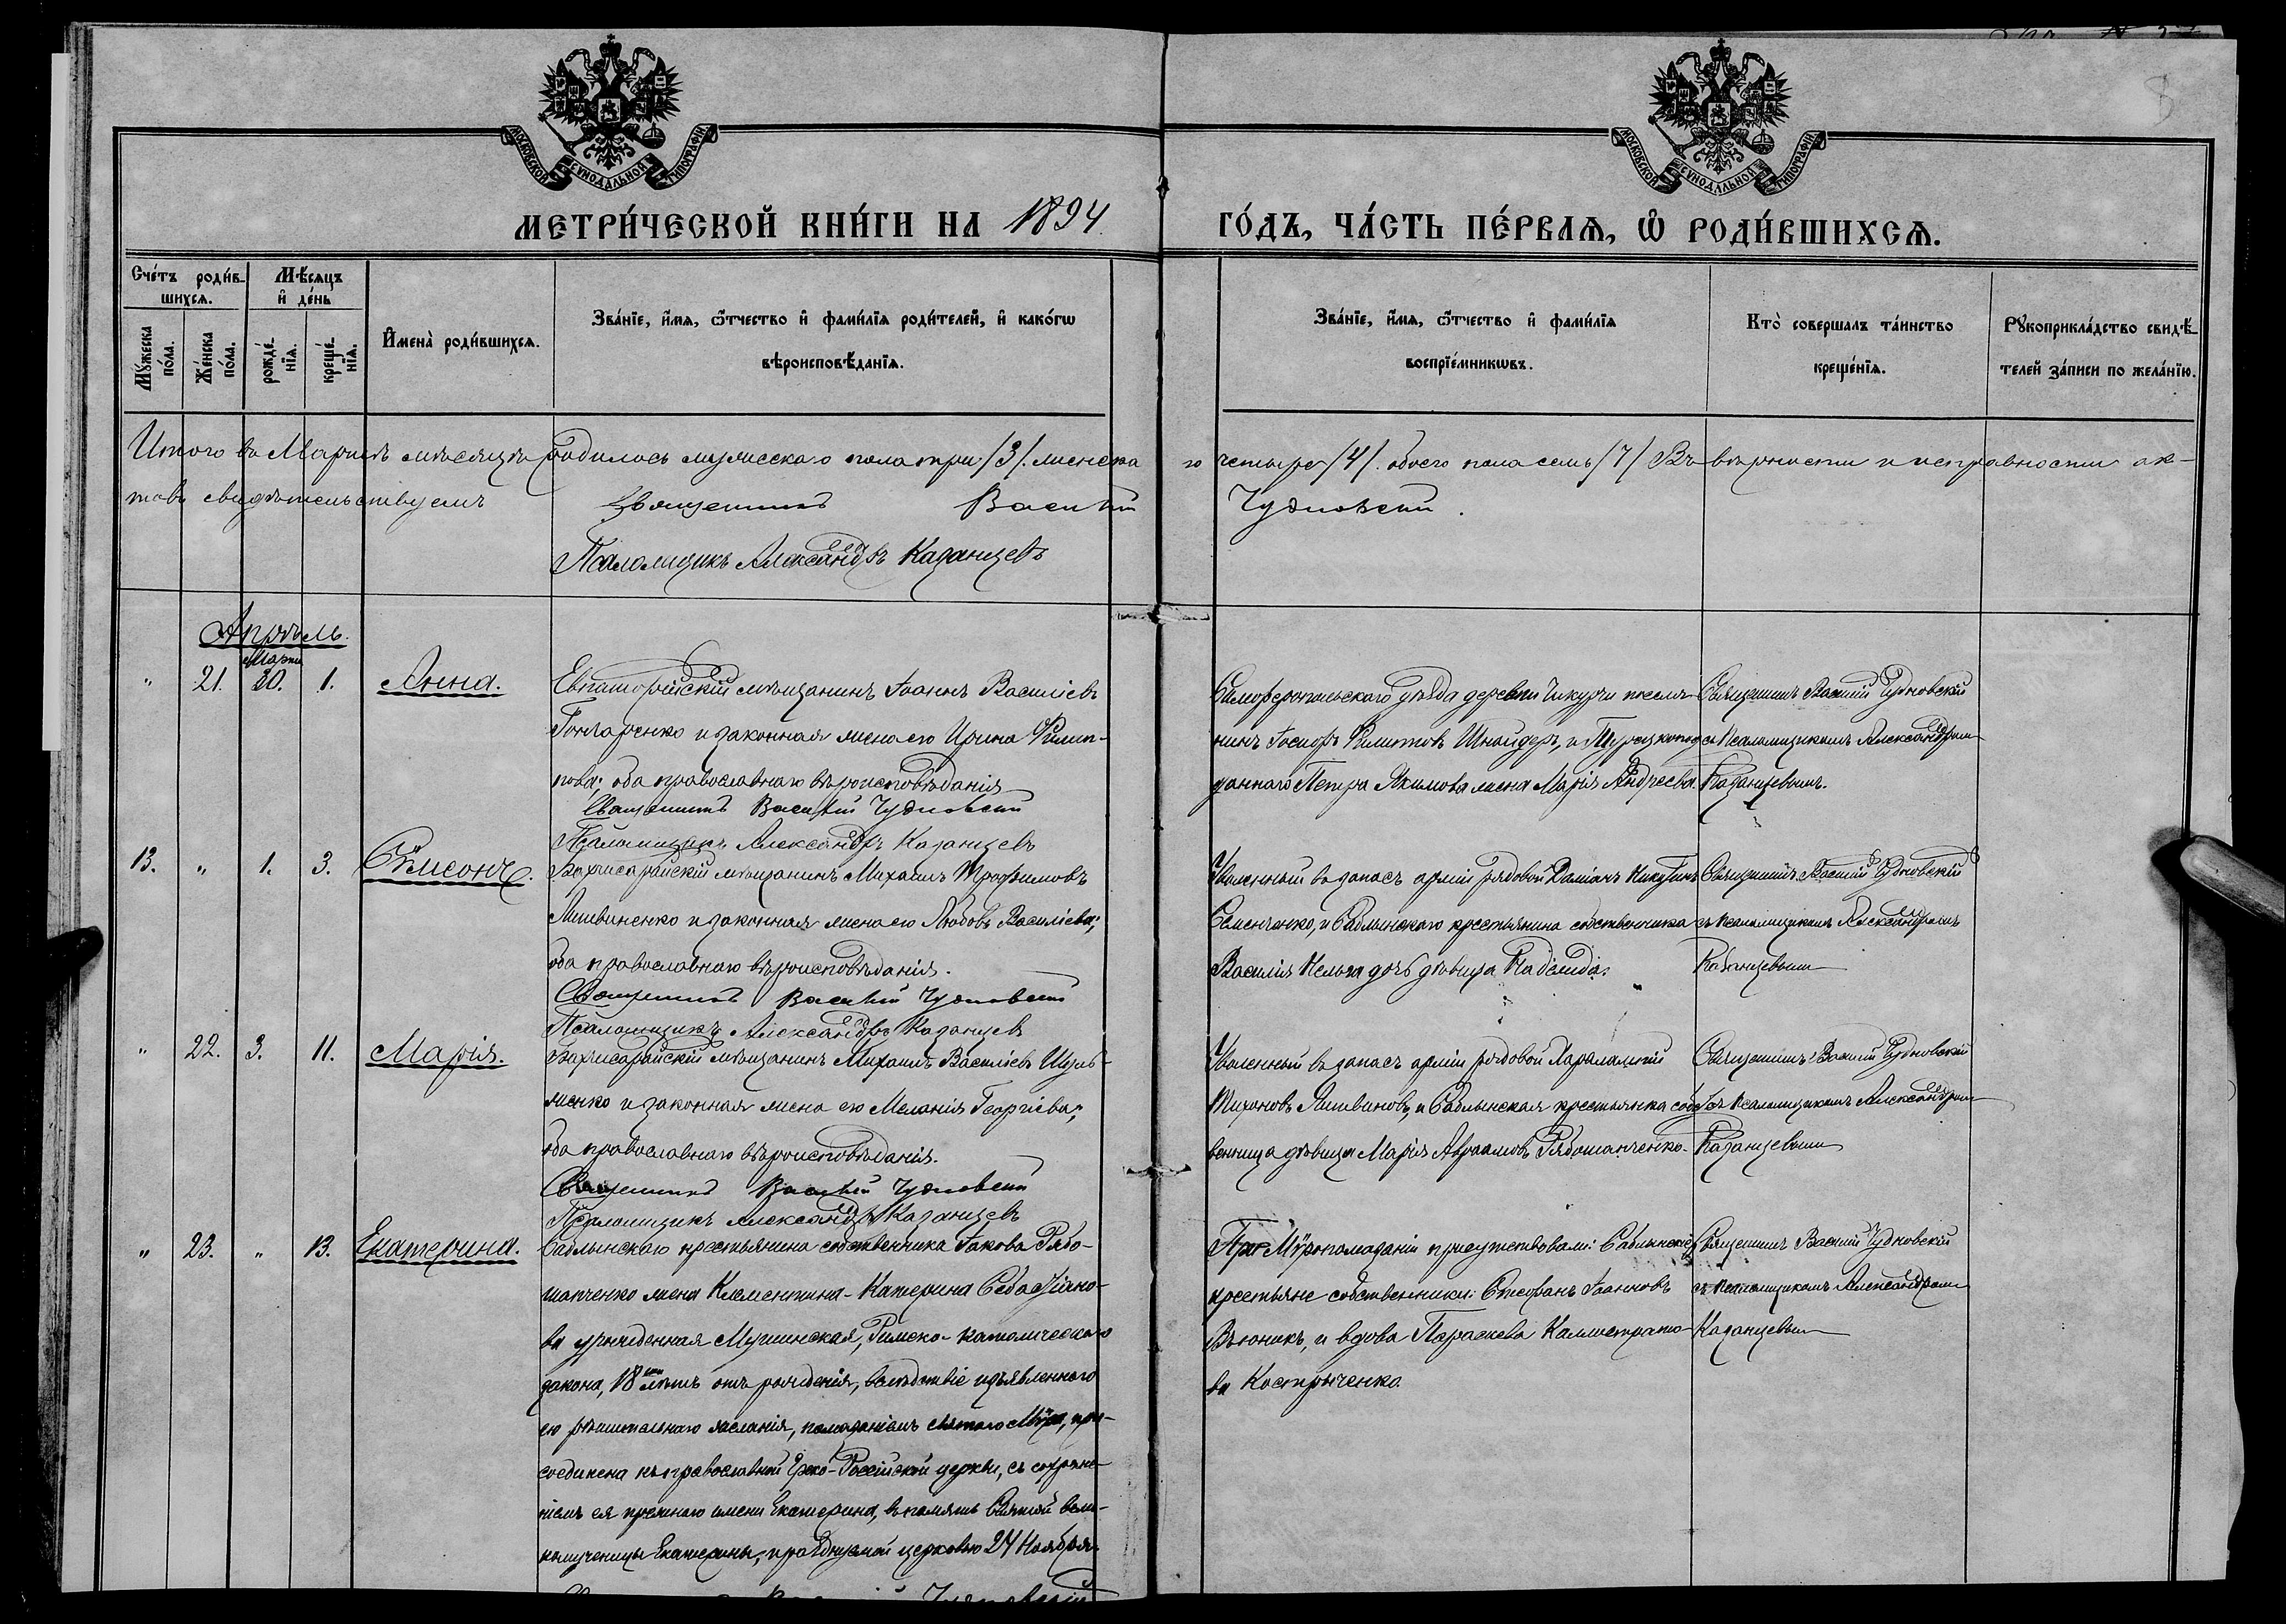 МОСКОВСКОЙ СѴНОДАЛЬНОЙ ТИПОГРАФІИ
МОСКОВСКОЙ СѴНОДАЛЬНОЙ ТИПОГРАФІИ
МЕТРИ́ЧЕСКОЙ КНИ́ГИ НА 1894. ГО́ДЪ, ЧА́СТЬ ПЕ́РВАѦ, Ѡ҆ РОДИ́ВШИХСѦ.
Сче́тъ роди́в-
шихсѧ.
Мѣ́сѧцъ
и҆ де́нь
Мꙋ́жеска
по́ла.
Же́нска
по́ла.
рожде́-
нїѧ.
креще́-
нїѧ.
И҆мена̀ роди́вшихсѧ.
Зва́нїе, и҆́мѧ, ѻ҆́тчество и҆ фами́лїѧ роди́телей, и҆ како́гѡ
вѣроисповѣ́данїѧ.
Зва́нїе, и҆́мѧ, ѻ҆́тчество и҆ фами́лїѧ
воспрїе́мникѡвъ.
Кто̀ соверша́лъ та́инство
креще́нїѧ.
Рꙋкоприкла́дство свидѣ́-
телей за́писи по жела́нїю.
Итого въ Мартѣ мѣсяцѣ родилось мужескаго пола три /3/. женска го четыре /4/. обоего пола семь /7/ Въ вѣрности и исправности ак-
товъ свидѣтельствуемъ Священникъ Василій Чудновскій.
Псаломщикъ Александръ Казанцевъ
Апрѣль.
Марта
" 21. 30. 1. Анна.
Евпаторійскій мѣщанинъ Іоаннъ Василіевъ
Гончаренко и законная жена его Ирина Филип-
пова; оба православнаго вѣроисповѣданія
Священникъ Василій Чудновскій
Псаломщикъ Александръ Казанцевъ
Симферопольскаго уѣзда деревни Чикурчи поселя-
нинъ Іосифъ Филиповъ Шнайдеръ, и Турецкопод-
даннаго Петра Якимова жена Марія Андреева.
Священникъ Василій Чудновскій
съ псаломщикомъ Александромъ
Казанцевымъ.
13. " 1. 3. Сѵмеонъ.
Бахчисарайскій мѣщанинъ Михаилъ Трофимовъ
Литвиненко и законная жена его Любовь Василіева;
оба православнаго вѣроисповѣданія.
Священникъ Василій Чудновскій
Псаломщикъ Александръ Казанцевъ
Уволенный въ запасъ арміи рядовой Даміанъ Никитинъ
Семенченко, и Саблынскаго крестьянина собственника
Василія дочь дѣвица Надежда.
Священникъ Василій Чудновскій
съ псаломщикомъ Александромъ
Казанцевымъ
" 22. 3. 11. Марія.
Бахчисарайскій мѣщанинъ Михаилъ Василіевъ Шуль-
женко и законная жена его Меланія Георгіева;
оба православнаго вѣроисповѣданія.
Священникъ Василій Чудновскій
Псаломщикъ Александръ Казанцевъ
Уволенный въ запасъ арміи рядовой Харалампій
Тихоновъ Литвиновъ, и Саблынская крестьянка собст-
венница дѣвица Марія Авраамовъ Рябошапченко.
Священникъ Василій Чудновскій
съ псаломщикомъ Александромъ
Казанцевымъ
" 23. " 13. Екатерина.
Саблынскаго крестьянина собственника Іакова Рябо-
шапченко жена Клементина-Катерина Себастіано-
ва урожденная Мушинская, Римско-католическаго
закона, 18 лѣтъ отъ рожденія, вслѣдствіе изъявленнаго
ею рѣшительнаго желанія, помазаніемъ святаго Мѵра, при-
соединена къ православной Греко-Россійской церкви, съ сохране-
ніемъ ея прежняго имени Екатерина, въ память Святой вели-
комученицы Екатерины, празднуемой церковью 24 Ноября.
При Мѵропомазаніи присутствовали: Саблынскіе
крестьяне собственники: Стефанъ Іоанновъ
Вьюникъ, и вдова Параскева Каллистрато-
ва Костриченко.
Священникъ Василій Чудновскій
съ псаломщикомъ Александромъ
Казанцевымъ